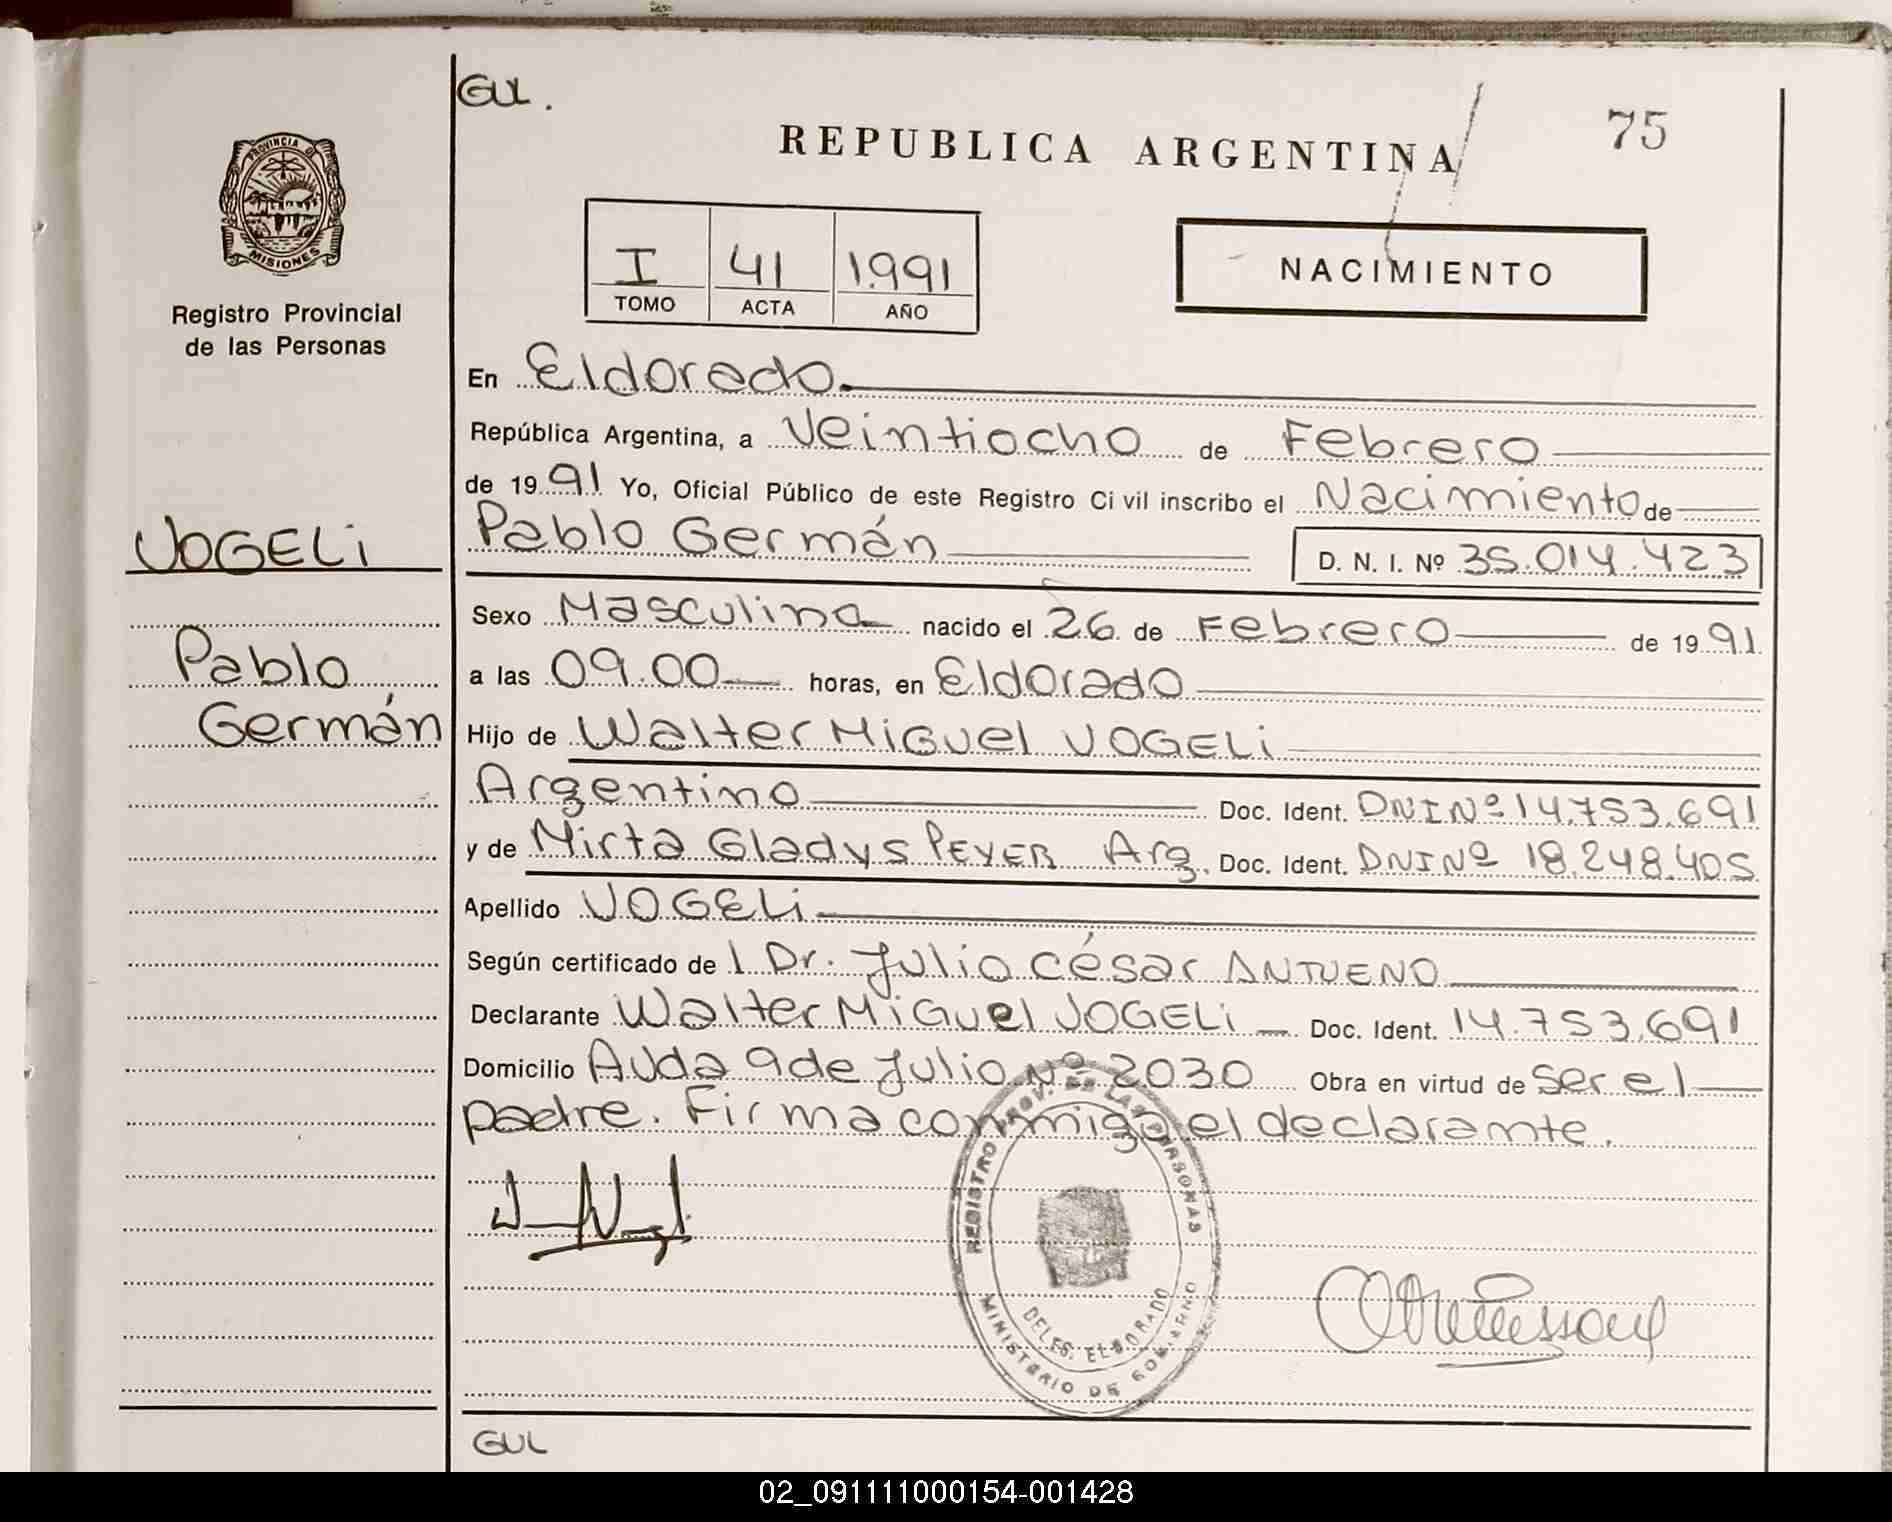 GUL.
75
REPUBLICA ARGENTINA
PROVINCIA DE
MISIONES
Registro Provincial
de las Personas
I 41 1.991
TOMO ACTA AÑO
NACIMIENTO
En Eldorado.
República Argentina, a Veintiocho de Febrero
de 1991 Yo, Oficial Público de este Registro Civil inscribo el Nacimiento de
Pablo Germán D. N. I. Nº 35.014.423
VOGELi
Pablo
Germán
Sexo Masculino nacido el 26 de Febrero de 1991
a las 09.00 horas, en Eldorado
Hijo de Walter Miguel VOGELi
Argentino Doc. Ident. DNI Nº 14.753.691
y de Mirta Gladys PEYER Arg. Doc. Ident. DNI Nº 18.248.405
Apellido VOGELi
Según certificado de l Dr. Julio César ANTUENO
Declarante Walter Miguel VOGELi Doc. Ident. 14.753.691
Domicilio Avda 9 de Julio Nº 2030 Obra en virtud de ser el
padre. Firma conmigo el declarante.
REGISTRO PROV. DE LAS PERSONAS
DELEG. ELDORADO
MINISTERIO DE GOBIERNO
GUL
02_091111000154-001428